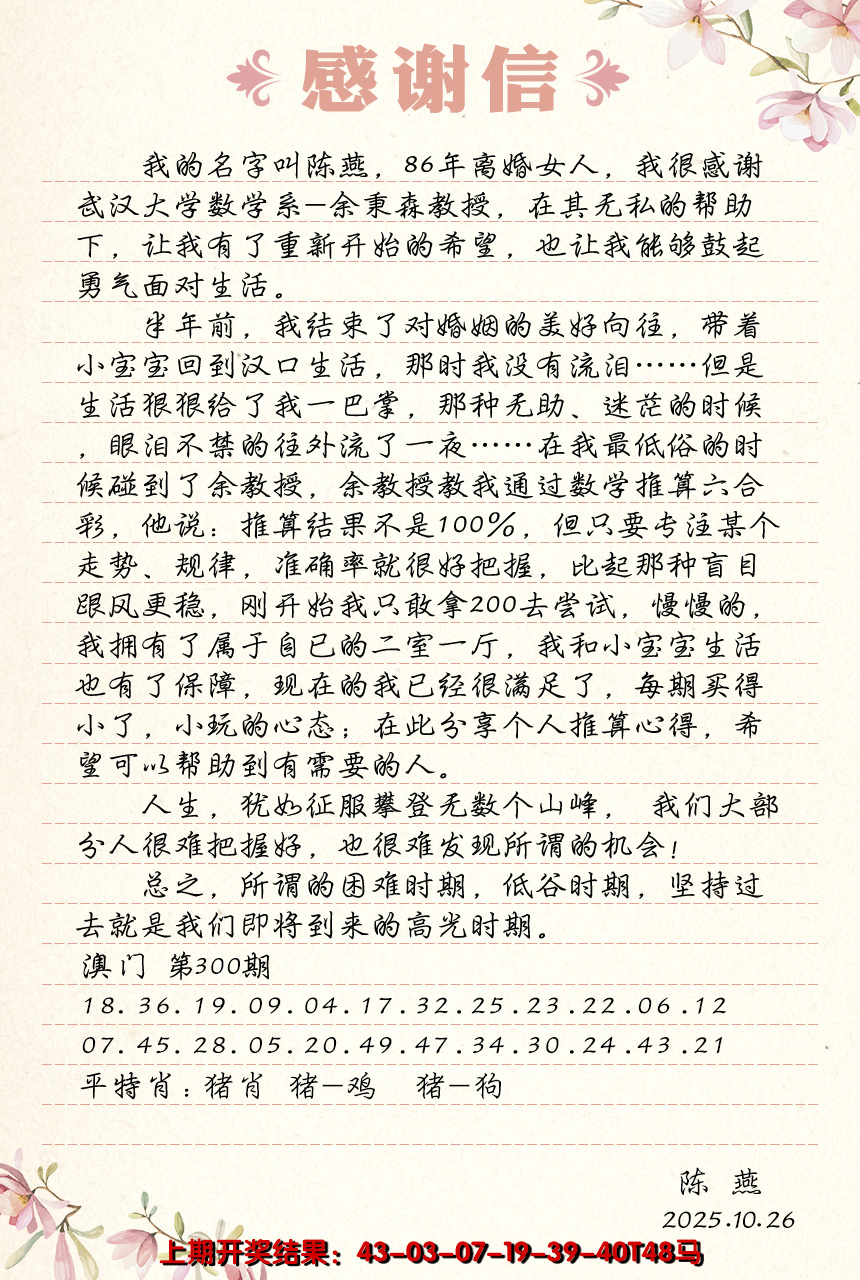 感谢信
我的名字叫陈燕，86年离婚女人，我很感谢
武汉大学数学系—余秉森教授，在其无私的帮助
下，让我有了重新开始的希望，也让我能够鼓起
勇气面对生活。
半年前，我结束了对婚姻的美好向往，带着
小宝宝回到汉口生活，那时我没有流泪……但是
生活狠狠给了我一巴掌，那种无助、迷茫的时候
，眼泪不禁的往外流了一夜……在我最低俗的时
候碰到了余教授，余教授教我通过数学推算六合
彩，他说：推算结果不是100%，但只要专注某个
走势、规律，准确率就很好把握，比起那种盲目
跟风更稳，刚开始我只敢拿200去尝试，慢慢的，
我拥有了属于自已的二室一厅，我和小宝宝生活
也有了保障，现在的我已经很满足了，每期买得
小了，小玩的心态；在此分享个人推算心得，希
望可以帮助到有需要的人。
人生，犹如征服攀登无数个山峰， 我们大部
分人很难把握好，也很难发现所谓的机会！
总之，所谓的困难时期，低谷时期，坚持过
去就是我们即将到来的高光时期。
澳门 第300期
18.36.19.09.04.17.32.25.23.22.06.12
07.45.28.05.20.49.47.34.30.24.43.21
平特肖：猪肖 猪—鸡 猪—狗
陈 燕
2025.10.26
上期开奖结果：43-03-07-19-39-40T48马